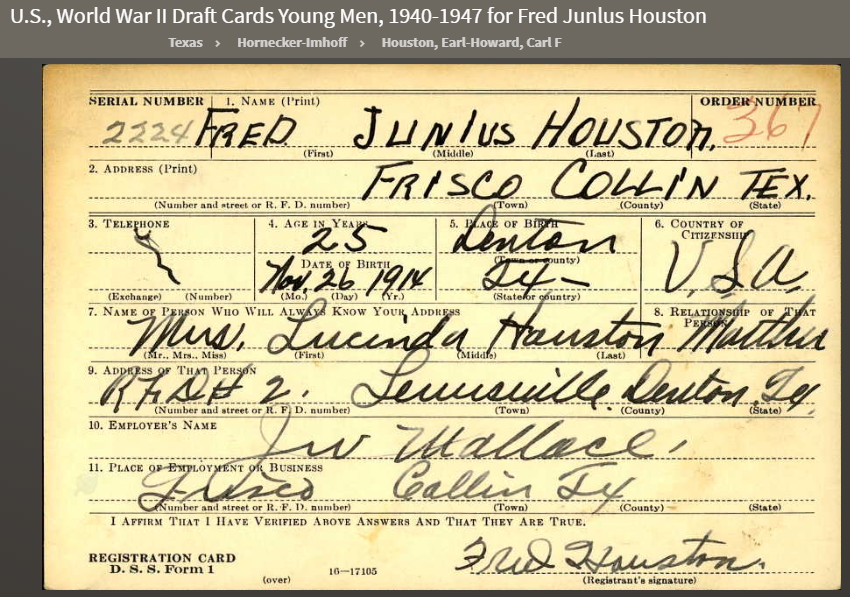 U.S., World War II Draft Cards Young Men, 1940-1947 for Fred Junlus Houston
Texas > Hornecker-Imhoff > Houston, Earl-Howard, Carl F
SERIAL NUMBER 1. NAME (Print) ORDER NUMBER
2224 FRED JUNIUS HOUSTON. 367
(First) (Middle) (Last)
2. ADDRESS (Print)
FRISCO COLLIN TEX.
(Number and street or R. F. D. number) (Town) (County) (State)
3. TELEPHONE 4. AGE IN YEARS 5. PLACE OF BIRTH 6. COUNTRY OF CITIZENSHIP
25 Denton
DATE OF BIRTH (Town or county)
Nov. 26 1914 Tx— U.S.A.
(Exchange) (Number) (Mo.) (Day) (Yr.) (State or country)
7. NAME OF PERSON WHO WILL ALWAYS KNOW YOUR ADDRESS 8. RELATIONSHIP OF THAT PERSON
Mrs. Lucinda Houston
(Mr., Mrs., Miss) (First) (Middle) (Last)
9. ADDRESS OF THAT PERSON
R.F.D # 2. Lewisville. Denton, Tx.
(Number and street or R. F. D. number) (Town) (County) (State)
10. EMPLOYER'S NAME
J W Wallace.
11. PLACE OF EMPLOYMENT OR BUSINESS
Frisco Collin Tx
(Number and street or R. F. D. number) (Town) (County) (State)
I AFFIRM THAT I HAVE VERIFIED ABOVE ANSWERS AND THAT THEY ARE TRUE.
REGISTRATION CARD Fred Houston.
D. S. S. Form 1 (over) 16—17105 (Registrant's signature)